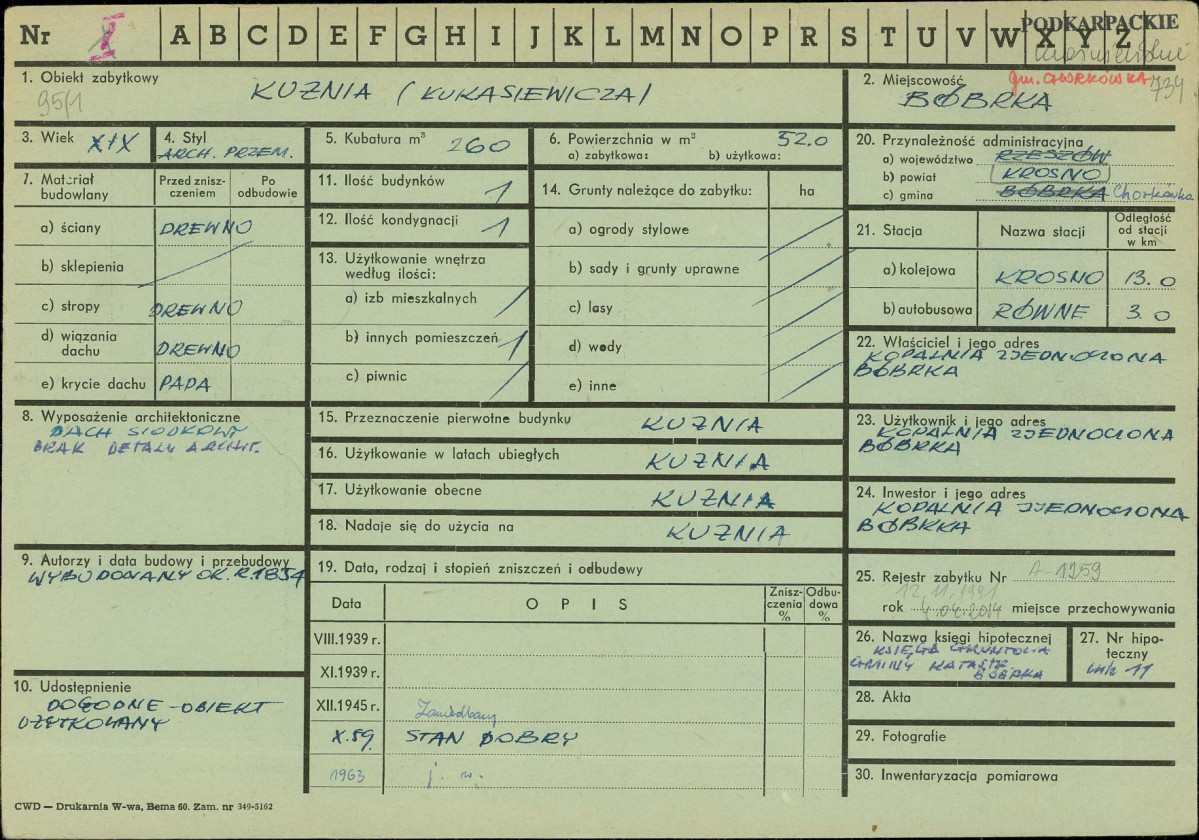 Nr I A B C D E F G H I J K L M N O P R S T U V W X Y Z
PODKARPACKIE
1. Obiekt zabytkowy
95/1
KUŹNIA (ŁUKASIEWICZA)
2. Miejscowość
gm. CHORKÓWKA
734
BÓBRKA
3. Wiek XIX
4. Styl
ARCH. PRZEM.
5. Kubatura m³ 260
6. Powierzchnia w m² 52.0
a) zabytkowa: b) użytkowa:
20. Przynależność administracyjna
a) województwo RZESZÓW
b) powiat KROSNO
c) gmina BÓBRKA Chorkówka
7. Materiał budowlany
Przed zniszczeniem
Po odbudowie
a) ściany DREWNO
b) sklepienia
c) stropy DREWNO
d) wiązania dachu DREWNO
e) krycie dachu PAPA
11. Ilość budynków 1
12. Ilość kondygnacji 1
13. Użytkowanie wnętrza według ilości:
a) izb mieszkalnych /
b) innych pomieszczeń 1
c) piwnic /
14. Grunty należące do zabytku: ha
a) ogrody stylowe
b) sady i grunty uprawne
c) lasy
d) wody
e) inne
21. Stacja
Nazwa stacji
Odległość od stacji w km
a) kolejowa KROSNO 13.0
b) autobusowa RÓWNE 3.0
22. Właściciel i jego adres
KOPALNIA ZJEDNOCZONA
BÓBRKA
8. Wyposażenie architektoniczne
DACH SIODŁOWY
BRAK DETALU ARCHIT.
15. Przeznaczenie pierwotne budynku KUŹNIA
16. Użytkowanie w latach ubiegłych KUŹNIA
17. Użytkowanie obecne KUŹNIA
18. Nadaje się do użycia na KUŹNIA
23. Użytkownik i jego adres
KOPALNIA ZJEDNOCZONA
BÓBRKA
24. Inwestor i jego adres
KOPALNIA ZJEDNOCZONA
BÓBRKA
9. Autorzy i data budowy i przebudowy
WYBUDOWANY OK. R. 1854
19. Data, rodzaj i stopień zniszczeń i odbudowy
Data
O P I S
Zniszczenia %
Odbudowa %
VIII.1939 r.
XI.1939 r.
XII.1945 r. Zaniedbany
X.59. STAN DOBRY
1963 j. w.
25. Rejestr zabytku Nr A-1259
12.11.1991
rok 4.04.2014 miejsce przechowywania
26. Nazwa księgi hipotecznej
KSIĘGA GRUNTOWA
GMINY KATASTR.
BÓBRKA
27. Nr hipoteczny
lwh 11
10. Udostępnienie
DOGODNE - OBIEKT
UŻYTKOWANY
28. Akta
29. Fotografie
30. Inwentaryzacja pomiarowa
CWD — Drukarnia W-wa, Bema 60. Zam. nr 349-5162